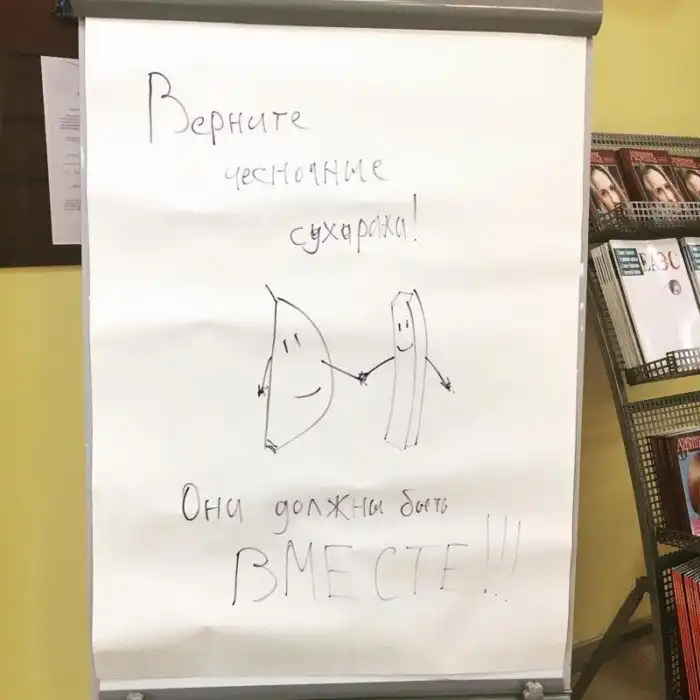 Верните
чесночные
сухарики!
Они должны быть
ВМЕСТЕ!!!
ЕАЭС